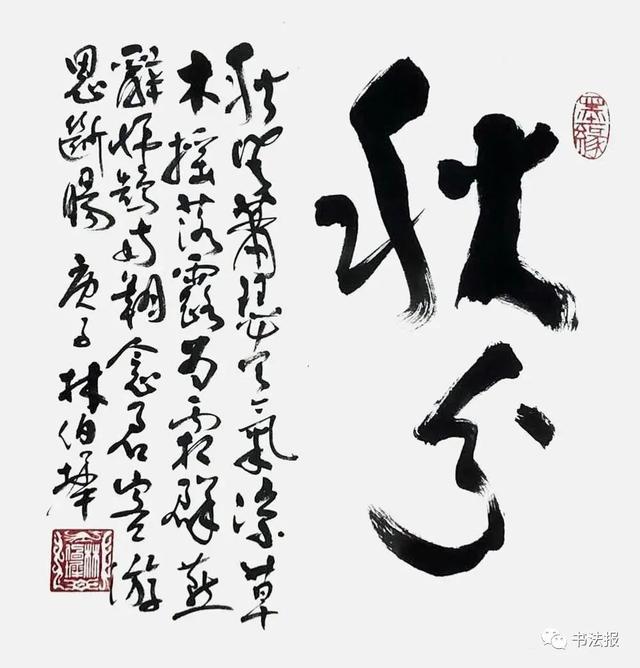 墨緣
秋分
秋風蕭瑟天氣涼草
木摇落露为霜群燕
辭歸南翔念君客游
思斷腸 庚子 林伯
书法报